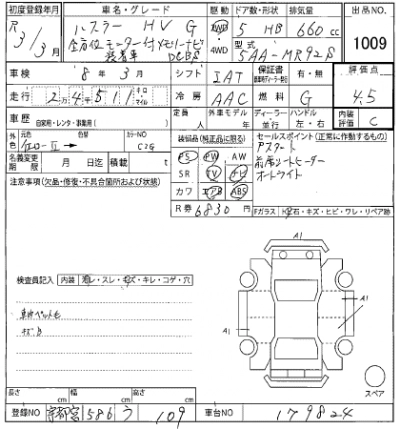 初度登録年月 車名・グレード 駆動 ドア数・形状 排気量 出品NO.
R3/3月 ハスラー HV G 2WD 4WD 5 HB 660cc 1009
全方位モニター付メモリーナビ
装着車 DCBS
型式 5AA-MR92S
車検 8年3月 シフト IAT 保証書 有・無 評価点
走行 2万4千511 キロ マイル 冷房 AAC 燃料 G 4.5
車歴 自家用・レンタ・事業用( ) 定員 人 外車モデル 年 ディーラー・並行 ハンドル 左・右 内装評価 C
外色 元色 色替 カラーNO C2G
名義変更期限 月 日迄 積載 t
装備品(純正品に限る)
PS PW AW
SR TV ナビ
カワ エアB ABS
R券 6830円
セールスポイント(正常に作動するもの)
Pスタート
前席シートヒーター
オートライト
注意事項(欠品・修復・不具合箇所および状態)
Fガラス
検査員記入 内装
A1
A1
A1
A1
スペア
長さ cm 幅 cm 高さ cm
登録NO 586 う 109 車台NO 179824